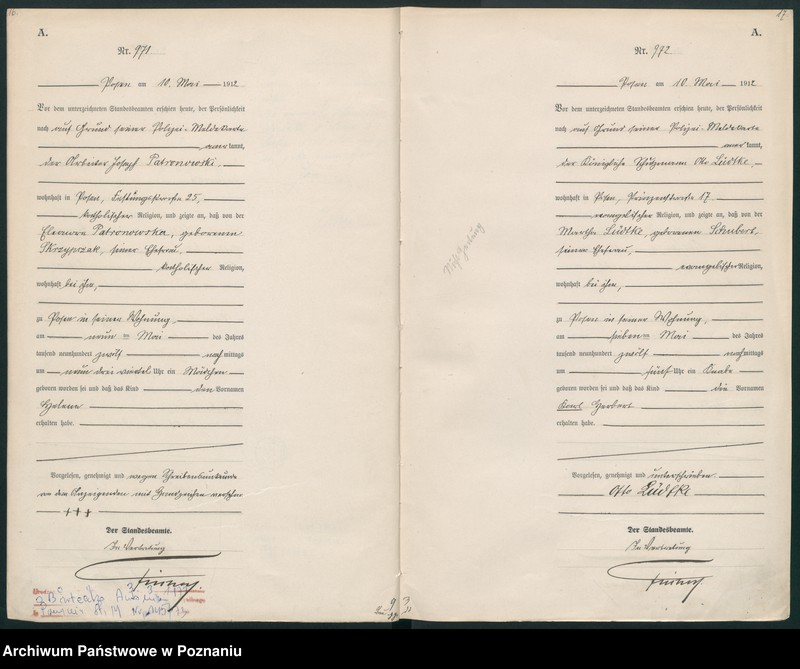 A.
Nr. 971
Posen am 10. Mai 1912
Vor dem unterzeichneten Standesbeamten erschien heute, der Persönlichkeit
nach auf Grund seiner Polizei-Meldekarte
anerkannt,
der Arbeiter Josef Patronowski
wohnhaft in Posen, 25,
katholischer Religion, und zeigte an, daß von der
Eleonore Patronowska, geborenen
Skrzypczak, seiner Ehefrau,
katholischer Religion,
wohnhaft bei ihm,
zu Posen in seiner Wohnung,
am neun ten Mai des Jahres
tausend neunhundert zwölf nachmittags
um neun drei viertel Uhr ein Mädchen
geboren worden sei und daß das Kind den Vornamen
Helene
erhalten habe.
Vorgelesen, genehmigt und wegen Schreibensunkunde
von dem Anzeigenden mit Handzeichen versehen
+++
Der Standesbeamte.
In Vertretung
17
A.
Nr. 972.
Posen am 10. Mai 1912
Vor dem unterzeichneten Standesbeamten erschien heute, der Persönlichkeit
nach auf Grund seiner Polizei-Meldekarte
anerkannt,
der Königliche Schutzmann Otto Lüdtke,
wohnhaft in Posen, Prinzenstraße 17.
evangelischer Religion, und zeigte an, daß von der
Martha Lüdtke, geborenen Schubert,
seiner Ehefrau,
evangelischer Religion,
wohnhaft bei ihm,
zu Posen in seiner Wohnung,
am sieben ten Mai des Jahres
tausend neunhundert zwölf nachmittags
um fünf Uhr ein Knabe
geboren worden sei und daß das Kind die Vornamen
Karl Herbert
erhalten habe.
Vorgelesen, genehmigt und unterschrieben
Otto Lüdtke
Der Standesbeamte.
In Vertretung
Archiwum Państwowe w Poznaniu